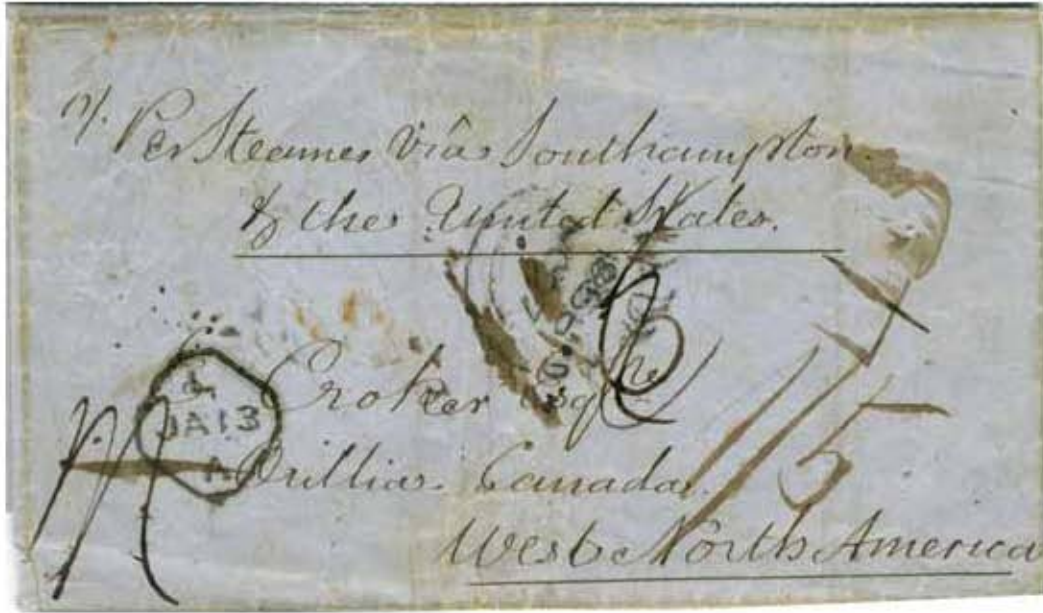 Per Steamer viâ Southampton
& the United States.
Croker Esqre
JA 13
Orillia Canada
West North America